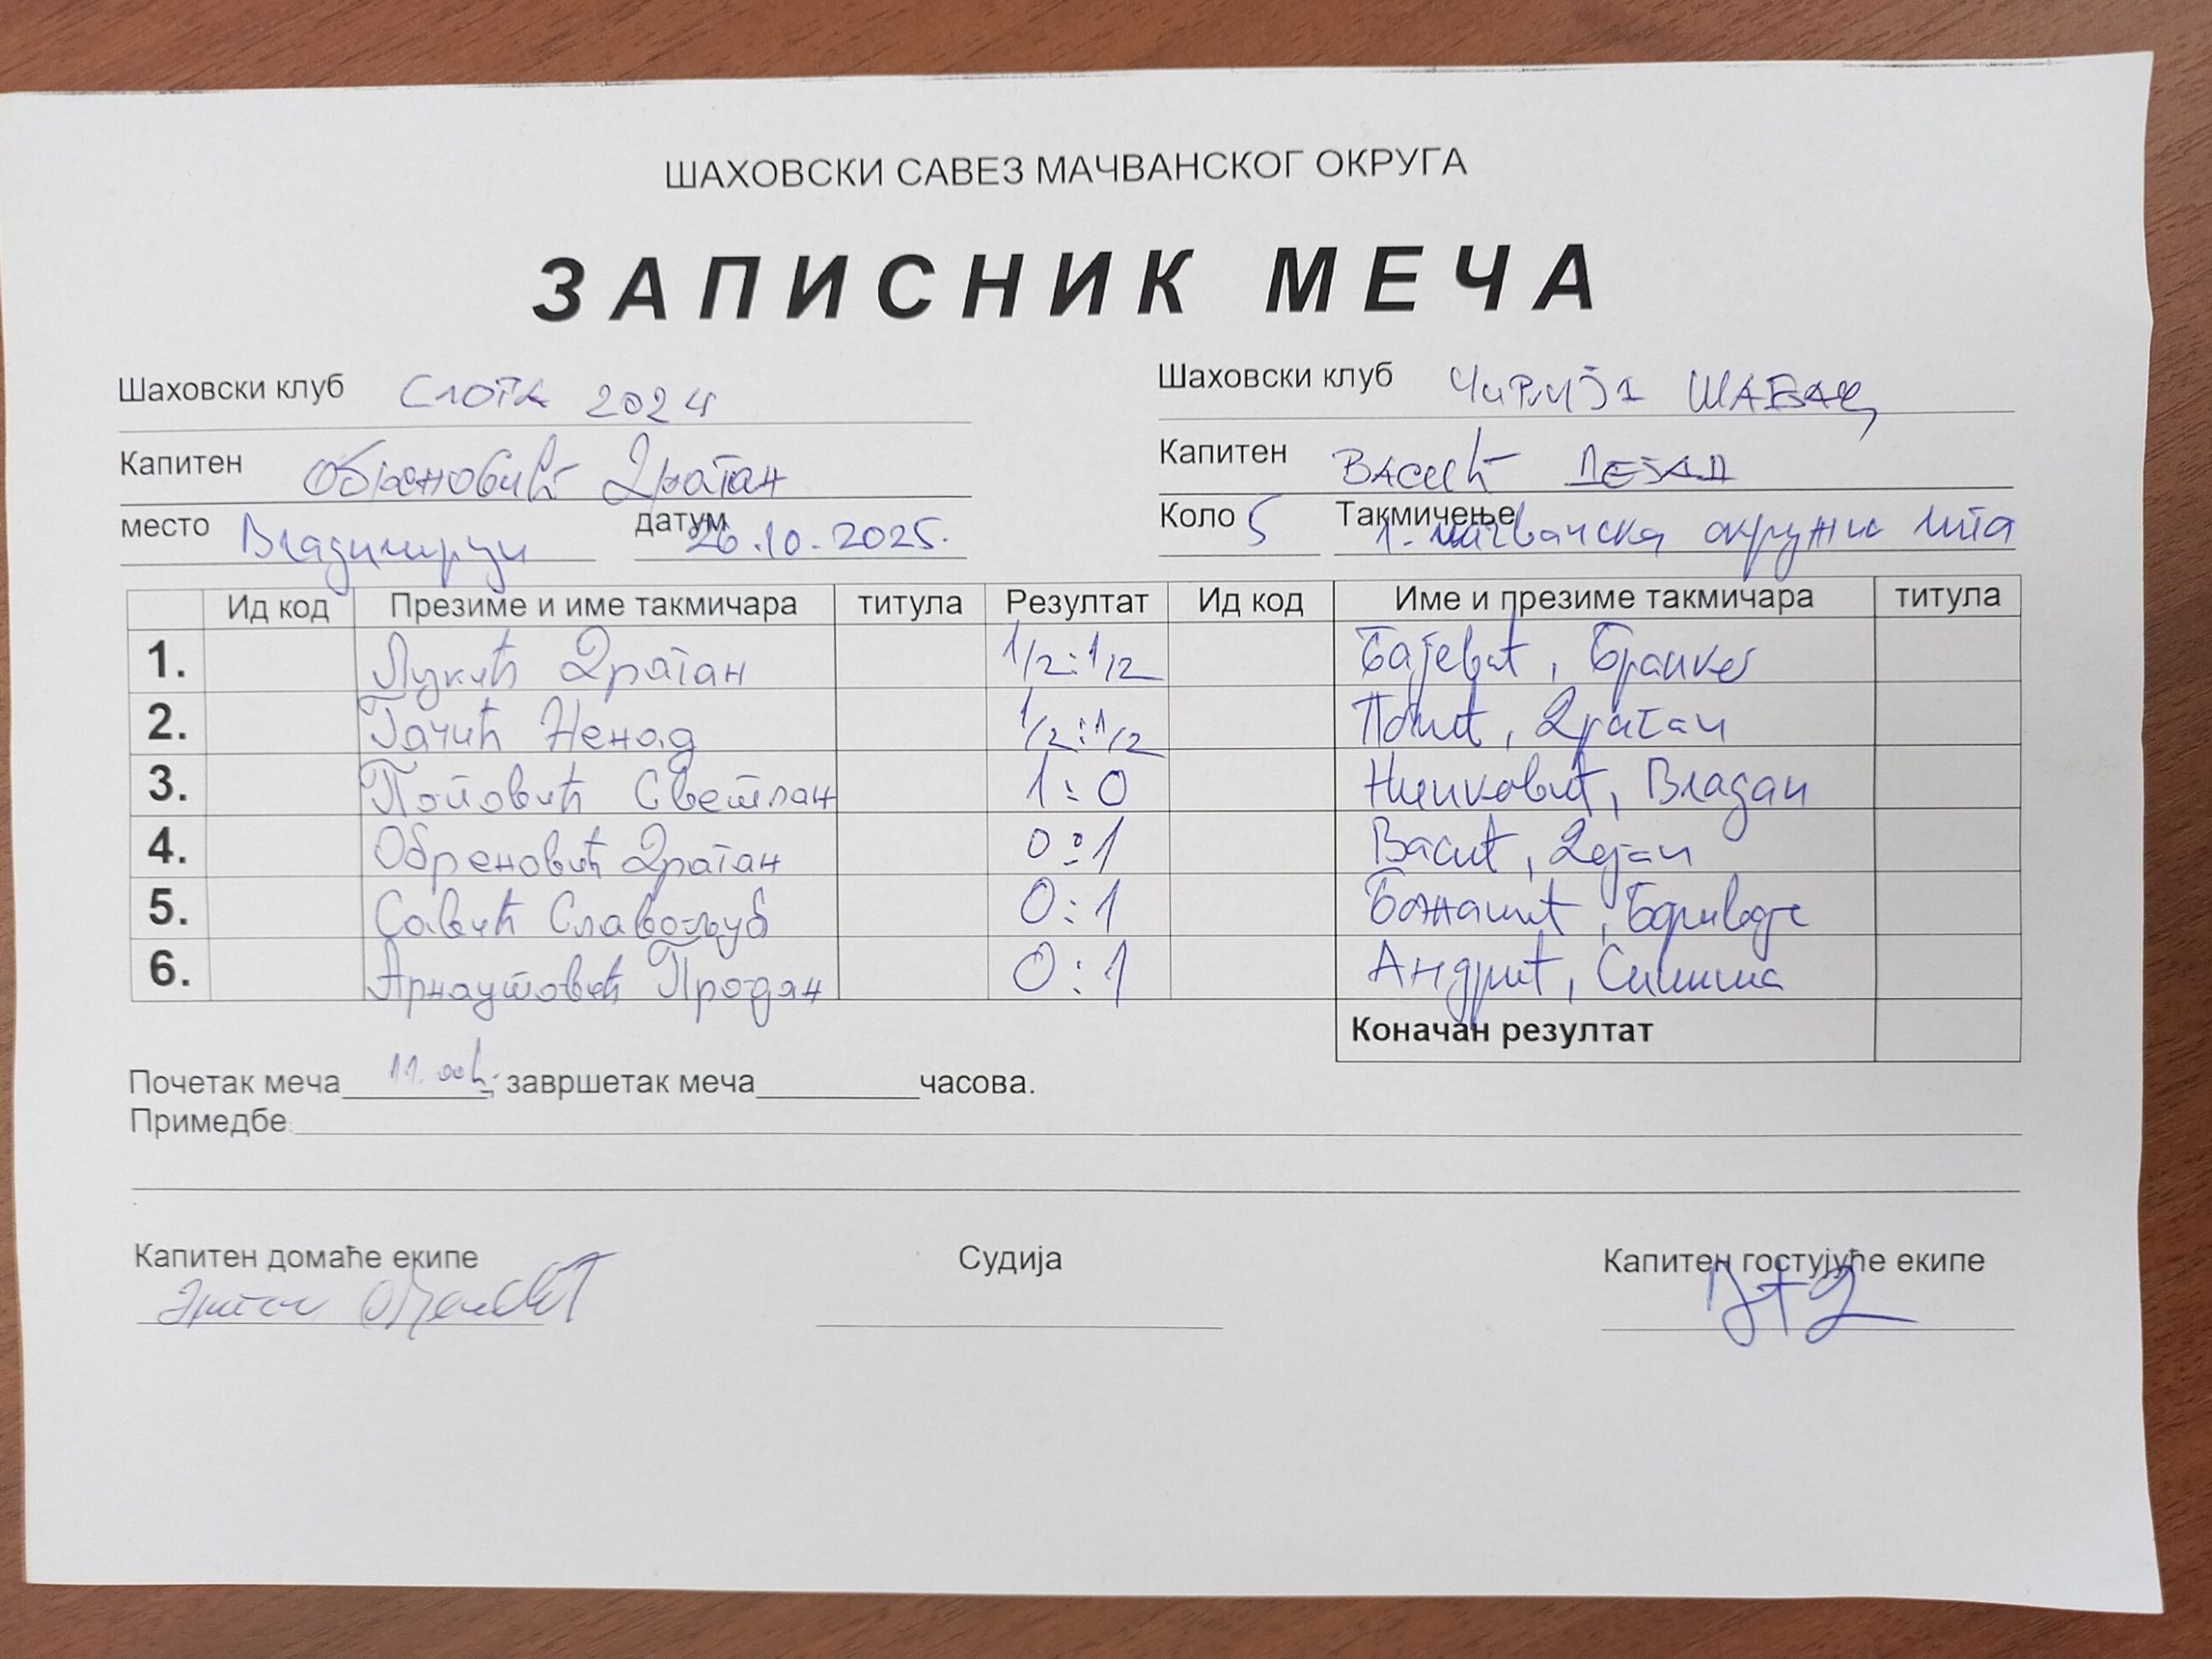 ШАХОВСКИ САВЕЗ МАЧВАНСКОГ ОКРУГА
ЗАПИСНИК МЕЧА
Шаховски клуб Слога 2024 Шаховски клуб Чивија ШАБАЦ
Капитен Обреновић Драган Капитен ВАСИЋ ДЕЈАН
место Владимирци датум 26.10.2025. Коло 5 Такмичење 1. мачванска окружна лига
Ид код Презиме и име такмичара титула Резултат Ид код Име и презиме такмичара титула
1. Лукић Драган 1/2:1/2 Бајевић, Бранко
2. Гачић Ненад 1/2:1/2 Драган
3. Поповић Светлан 1:0 Владан
4. Обреновић Драган 0:1 Васић, Дејан
5. Савић Славољуб 0:1 Боривоје
6. Арнаутовић Продан 0:1 Андрић, Синиша
Коначан резултат
Почетак меча 11.00h. завршетак меча часова.
Примедбе:
Капитен домаће екипе Судија Капитен гостујуће екипе